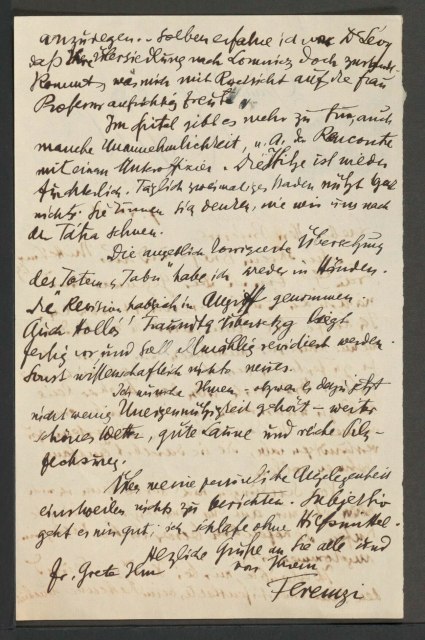 anzuregen. – Soeben erfahre ich von Dr Lévy
daß Ihre Übersiedlung nach Lomnicz doch zustande-
kommt, was mich mit Rücksicht auf die Frau
Professor aufrichtig freut.
Im Spital gibt es mehr zu tun, auch
manche Unannehmlichkeit, u. A. Rencontre
mit einem Unteroffizier. Die Hitze ist wieder
fürchterlich. Täglich zweimaliges Baden nützt gar
nichts. Sie können sich denken, wie wir uns nach
der Tátra sehnen.
Die angeblich korrigierte Übersetzung
des „Totem u Tabu" habe ich wieder in Händen.
Die Revision hab ich in Angriff genommen
Auch Hollós' Traumdtg Übersetzg liegt
fertig vor und soll allmählig revidiert werden.
Sonst wissenschaftlich nichts neues.
Ich wünsche Ihnen – obzwar es dazu jetzt
nicht wenig Uneigennützigkeit gehört – weiter
schönes Wetter, gute Laune und reiche Pilz-
fechsung.
Über meine persönliche Angelegenheit
einstweilen nichts zu berichten. Subjektiv
geht es mir gut, ich schlafe ohne Hilfsmittel.
Herzliche Grüße an Sie alle und
Fr. Grete von Ihrem
Ferenczi